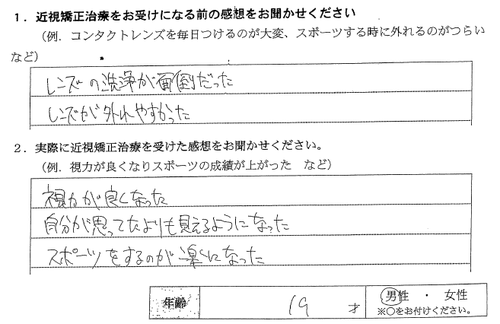 1．近視矯正治療をお受けになる前の感想をお聞かせください
（例．コンタクトレンズを毎日つけるのが大変、スポーツする時に外れるのがつらい
など）
レンズの洗浄が面倒だった
レンズが外れやすかった
2．実際に近視矯正治療を受けた感想をお聞かせください。
（例．視力が良くなりスポーツの成績が上がった　など）
視力が良くなった
自分が思ってたよりも見えるようになった
スポーツをするのが楽になった
年齢　19　才　男性　・　女性
※○をお付けください。